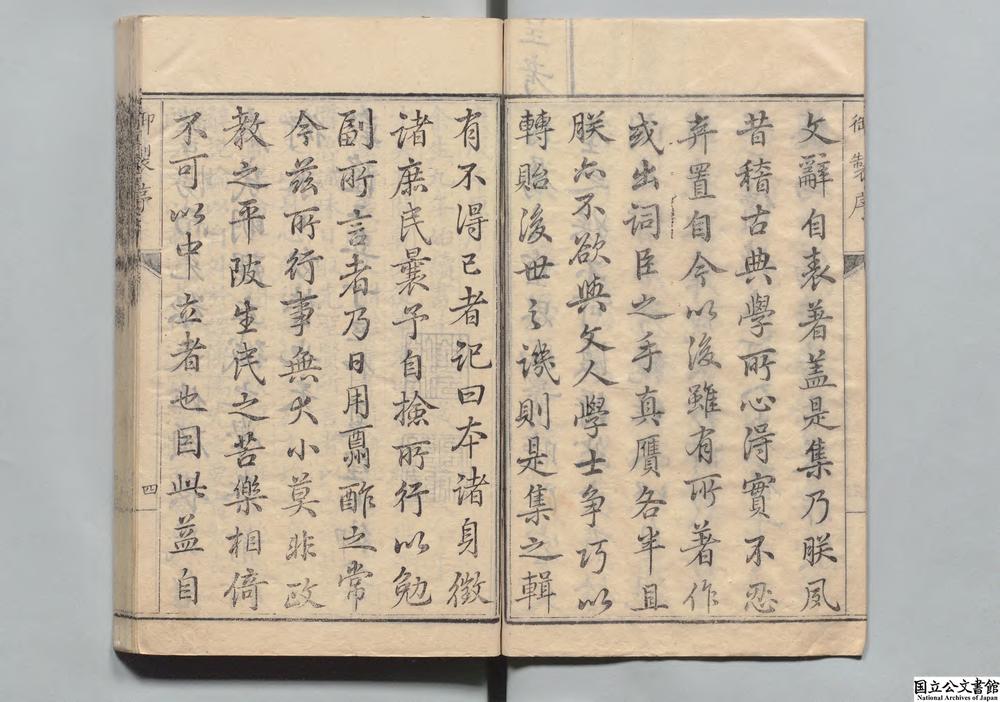 御製序
文辭自表著蓋是集乃朕夙
昔稽古典學所心得實不忍
弃置自今以後雖有所著作
或出詞臣之手真贋各半且
朕亦不欲與文人學士争巧以
轉貽後世之譏則是集之輯
有不得已者記曰本諸身徵
諸庶民曩予自撿所行以勉
副所言者乃日用酬酢之常
今茲所行事無大小莫非政
教之平陂生民之苦樂相倚
不可以中立者也因此益自
御製序
四
国立公文書館
National Archives of Japan